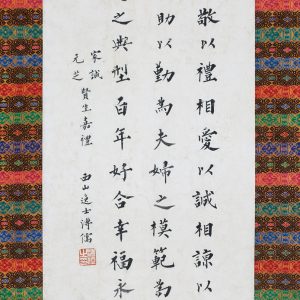 敬以禮相愛以誠相諒以
助以勤為夫婦之模範為
之典型百年好合幸福永
家誠
元芝
賢生嘉禮
西山逸士溥儒